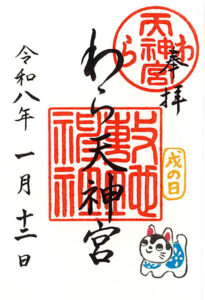 奉拝
わら天神宮
わら天神宮
敷地神社
戌の日
令和八年 一月十二日